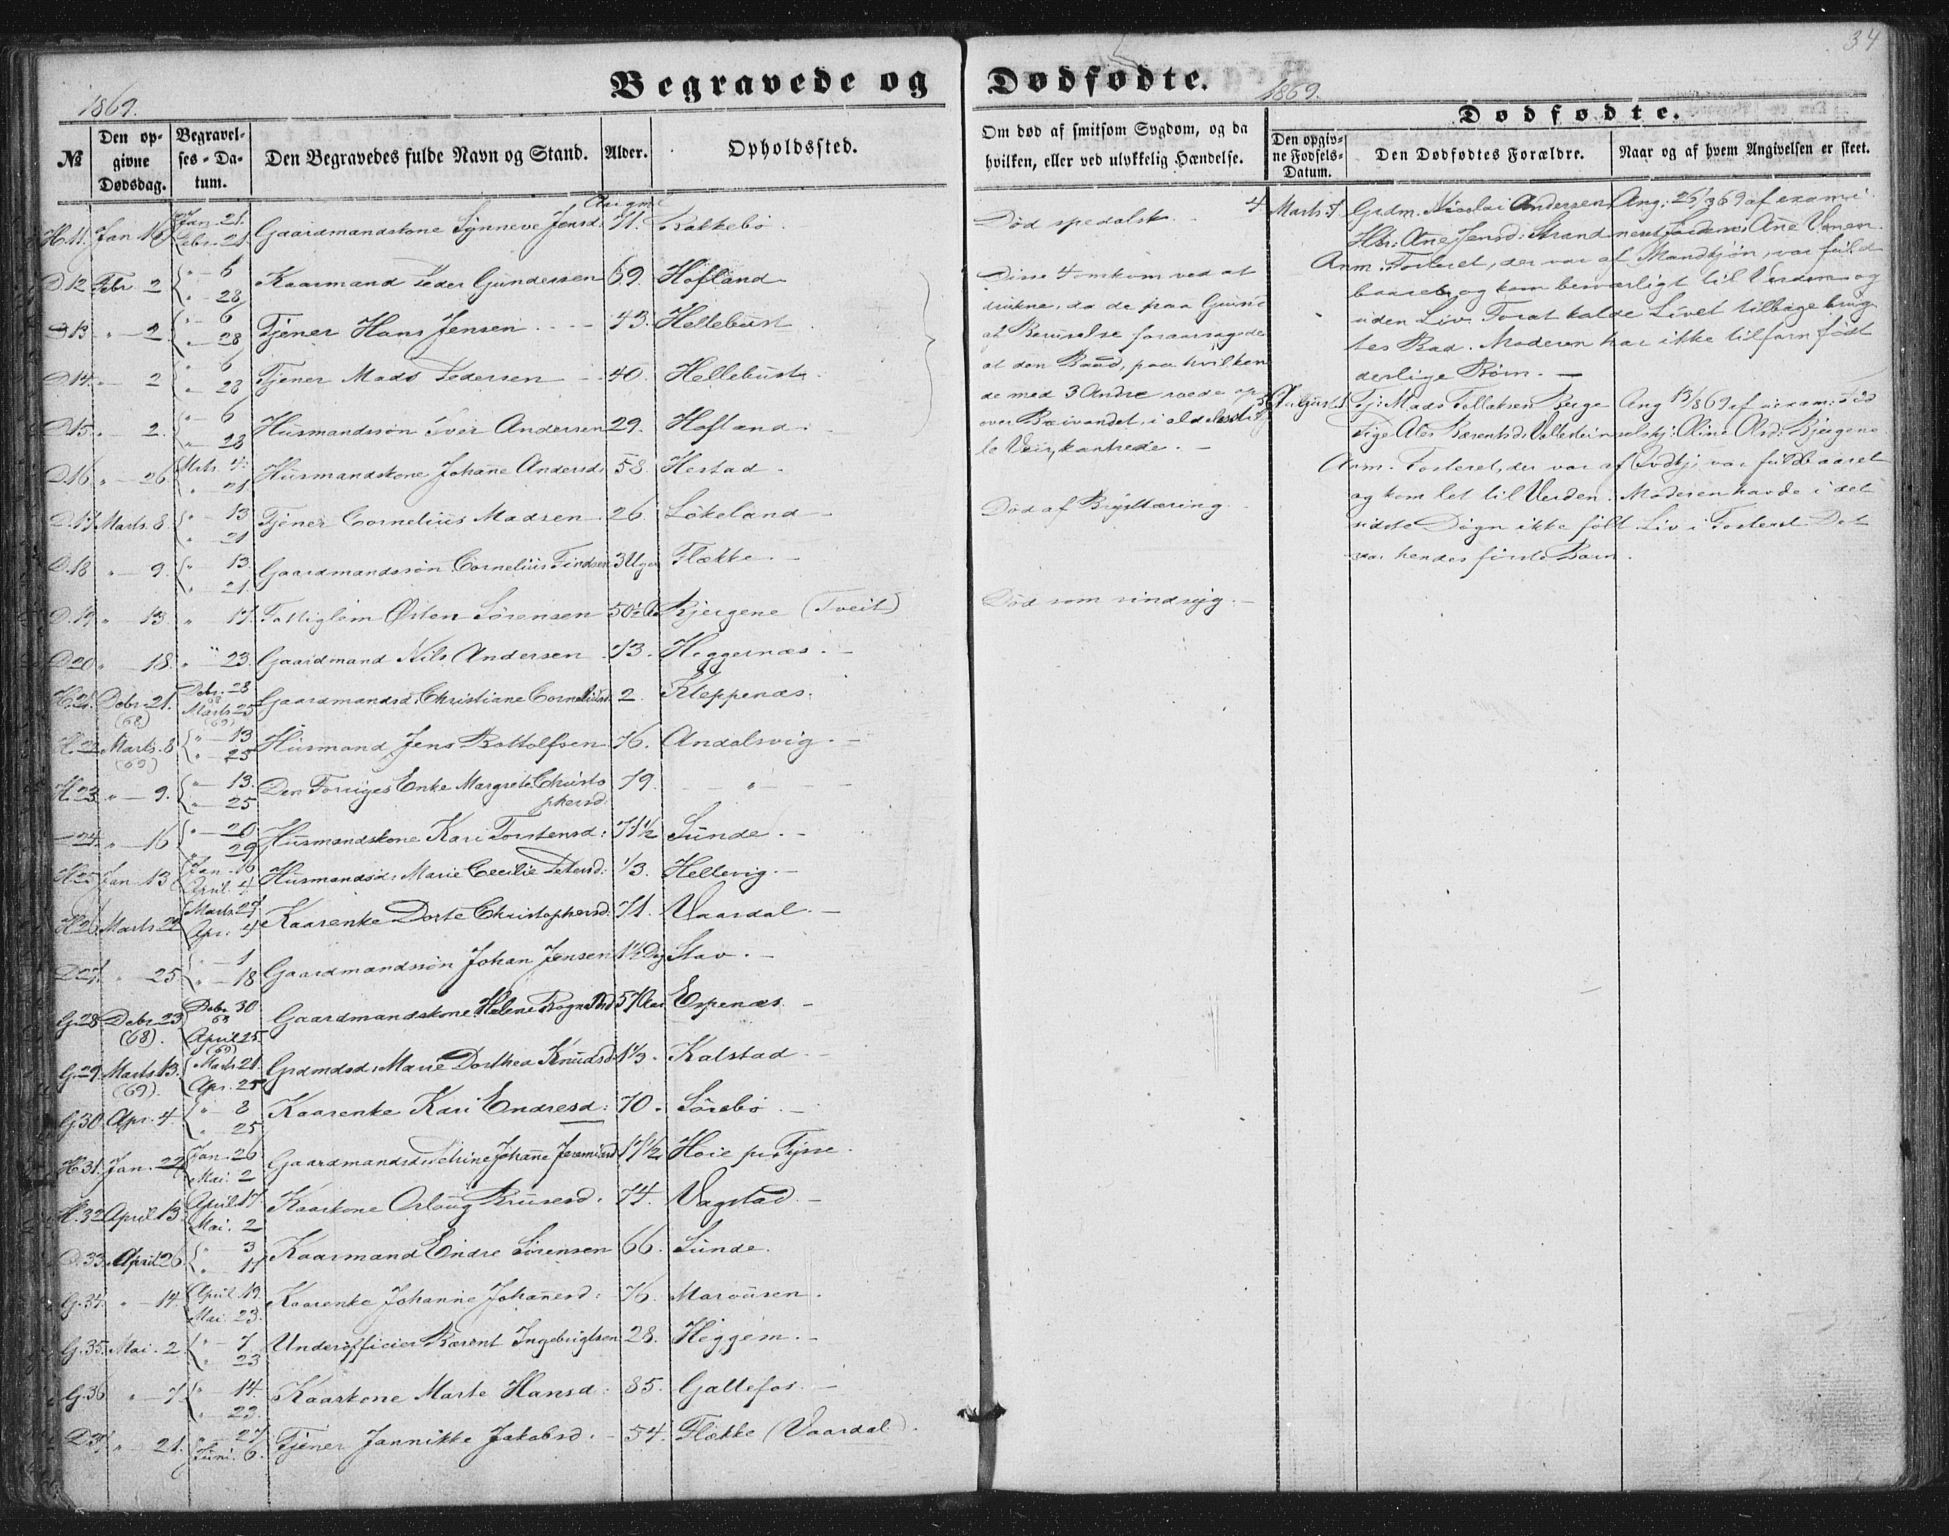 34
Begravede og Dødfødte.
1869.
1869.
№
Den opgivne Dødsdag.
Begravelses-Datum.
Den Begravedes fulde Navn og Stand.
Alder.
Opholdssted.
Om død af smitsom Sygdom, og da hvilken, eller ved ulykkelig Hændelse.
Dødfødte.
Den opgivne Fødsels-Datum.
Den Dødfødtes Forældre.
Naar og af hvem Angivelsen er skeet.
H. 11. Jan 16 Jan. 21. Febr. 21. Gaardmandskone Synneve Jensd 71. Rakkebø
D 12 Febr 2 " 6 " 28 Kaarmand Peder Gundersen 59. Hofland
D 13 " 2 " 6 " 28 Tjener Hans Jensen 43. Hellebust
D 14. " 2 " 6 " 28 Tjener Mads Pedersen 40. Hellebust.
D 15. " 2. " 6 " 28 Husmandssøn Iver Andersen 29. Hofland.
D 16 " 26 Mrts 4. " 21 Husmandskone Johane Andersd: 58. Hestad.
D. 17 Marts. 8 " 13 " 21 Tjener Cornelius Madsen. 26. Løkeland
D. 18 " 9. " 13. " 21. Gaardmandssøn Cornelius Findsen 3 Uger Flekke.
D. 19 " 13 " 17. Fattiglem Østen Sørensen 50½ Bjergene (Tveit)
D 20 " 18. " 23. Gaardmand Nils Andersen 73. Heggernæs.
H. 21. Debr. 21. (68) Debr. 28 68 Marts 25 (69) Gaardmandsd: Christiane Corneliusd 2. Kleppenæs.
H. 22 Marts. 8 (69) " 13 " 25 Husmand Jens Bottolfsen 76. Andalsvig.
H. 23 " 9. " 13. " 25 Den Forriges Enke Margrete Christophersd. 79. "
24. " 16 " 20 " 29 Husmandskone Kari Torstensd: 71½ Sunde.
H. 25 Jan 13 Jan. 16 April. 4. Husmandsd: Marie Cecilie Petersd: 1/3. Hellevig.
H 26 Marts 22 Marts. 27 Apr. 4 Kaarenke Dorte Christophersd: 71. Vaardal.
D 27. " 25 " 1 " 18 Gaardmandssøn Johan Jensen 1½ Dg Stav.
G. 28 Debr. 23 (68). Debr. 30 68 April 25. (69) Gaardmandskone Helene Rognaldsd 57 Aar Espenæs.
G. 29 Marts 13. (69). Marts 21. Apr. 25 Grdmdsd: Marie Dorthea Knudsd 1⅓. Kalstad
G. 30 Apr. 4. " 8 " 25 Kaarenke Kari Endresd: 70. Sørebø
H 31. Jan. 22 Jan. 26 Mai. 2 Gaardmandsd: Johanne Jeremiasd 17½ Høie pr Fysse.
H. 32 April 13. April 17 Mai. 2 Kaarkone Orloug Brusesd. 74. Vagstad.
D. 33. April 26. " 3 " 11 Kaarmand Endre Sørensen 66. Sunde.
G. 34. " 14. April. 19. Mai. 23. Kaarenke Johanne Johanesd: 76. Marousen.
G. 35. Mai. 2 " 7 " 23 Underofficier Bærent Ingebrigtsen 28. Heggem.
G. 36 " 7 " 14. " 23. Kaarkone Marte Hansd. 85. Galtefos.
D. 37. " 21. " 27 Juni. 6. Tjener Jannikke Jakobsd. 54. Flekke (Vaardal).
Død spedalsk.
Disse 4 omkom ved at
drukne, da de paa Grund
af Beruselse foraarsagede
at den Baad, paa hvilken
de med 3 Andre roede
over
Veir, kantrede.
Død af Brysttæring.
Død som sindssyg.
4 Marts 5 Grdm. Nicolai Andersen Ang: 25/3 69 af exami
Hbr: Ane Jensd: Strand
Anm. Fosteret, der var af Mandkjøn, var fuld
baaret og kom besværligt til Verden og
uden Liv. For at kalde Livet tilbage brug
tes Bad. Moderen har ikke tilforn født
delige Børn.
Tj: Mads Tollaksen Berge Ang 13/8 69 af uexam:
Pige Bærentsd: Oline Olsd: Bjergene
Anm. Fosteret, der var af Qvdkj, var fuldbaaret
og kom let til Verden. Moderen havde i det
sidste Døgn ikke følt Liv i Fosteret. Det
var hendes første Barn.